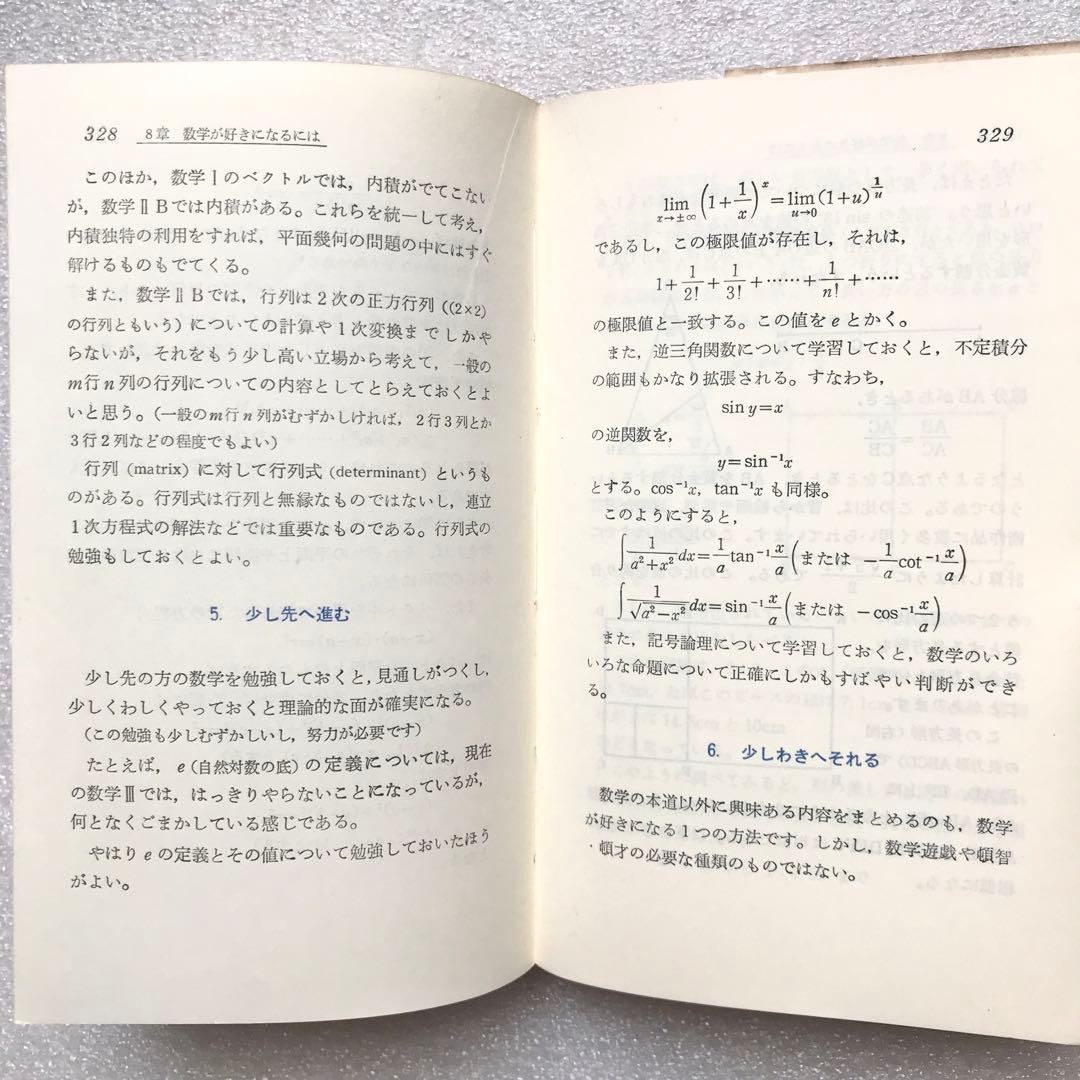 328 8章 数学が好きになるには
このほか，数学Ⅰのベクトルでは，内積がでてこない
が，数学ⅡBでは内積がある。これらを統一して考え，
内積独特の利用をすれば，平面幾何の問題の中にはすぐ
解けるものもでてくる。
また，数学ⅡBでは，行列は2次の正方行列((2×2)
の行列ともいう)についての計算や1次変換までしかや
らないが，それをもう少し高い立場から考えて，一般の
m行n列の行列についての内容としてとらえておくとよ
いと思う。(一般のm行n列がむずかしければ，2行3列とか
3行2列などの程度でもよい)
行列(matrix)に対して行列式(determinant)というも
のがある。行列式は行列と無縁なものではないし，連立
1次方程式の解法などでは重要なものである。行列式の
勉強もしておくとよい。
5. 少し先へ進む
少し先の方の数学を勉強しておくと，見通しがつくし，
少しくわしくやっておくと理論的な面が確実になる。
(この勉強も少しむずかしいし，努力が必要です)
たとえば，e(自然対数の底)の定義については，現在
の数学Ⅲでは，はっきりやらないことになっているが，
何となくごまかしている感じである。
やはりeの定義とその値について勉強しておいたほう
がよい。
329
lim_{x→±∞}(1+1/x)^x=lim_{u→0}(1+u)^{1/u}
であるし，この極限値が存在し，それは，
1+1/2!+1/3!+……+1/n!+……
の極限値と一致する。この値をeとかく。
また，逆三角関数について学習しておくと，不定積分
の範囲もかなり拡張される。すなわち，
sin y=x
の逆関数を，
y=sin⁻¹x
とする。cos⁻¹x，tan⁻¹xも同様。
このようにすると，
∫1/(a²+x²)dx=1/a tan⁻¹x/a(または −1/a cot⁻¹x/a)
∫1/√(a²−x²)dx=sin⁻¹x/a(または −cos⁻¹x/a)
また，記号論理について学習しておくと，数学のいろ
いろな命題について正確にしかもすばやい判断ができ
る。
6. 少しわきへそれる
数学の本道以外に興味ある内容をまとめるのも，数学
が好きになる1つの方法です。しかし，数学遊戯や頓智
・頓才の必要な種類のものではない。